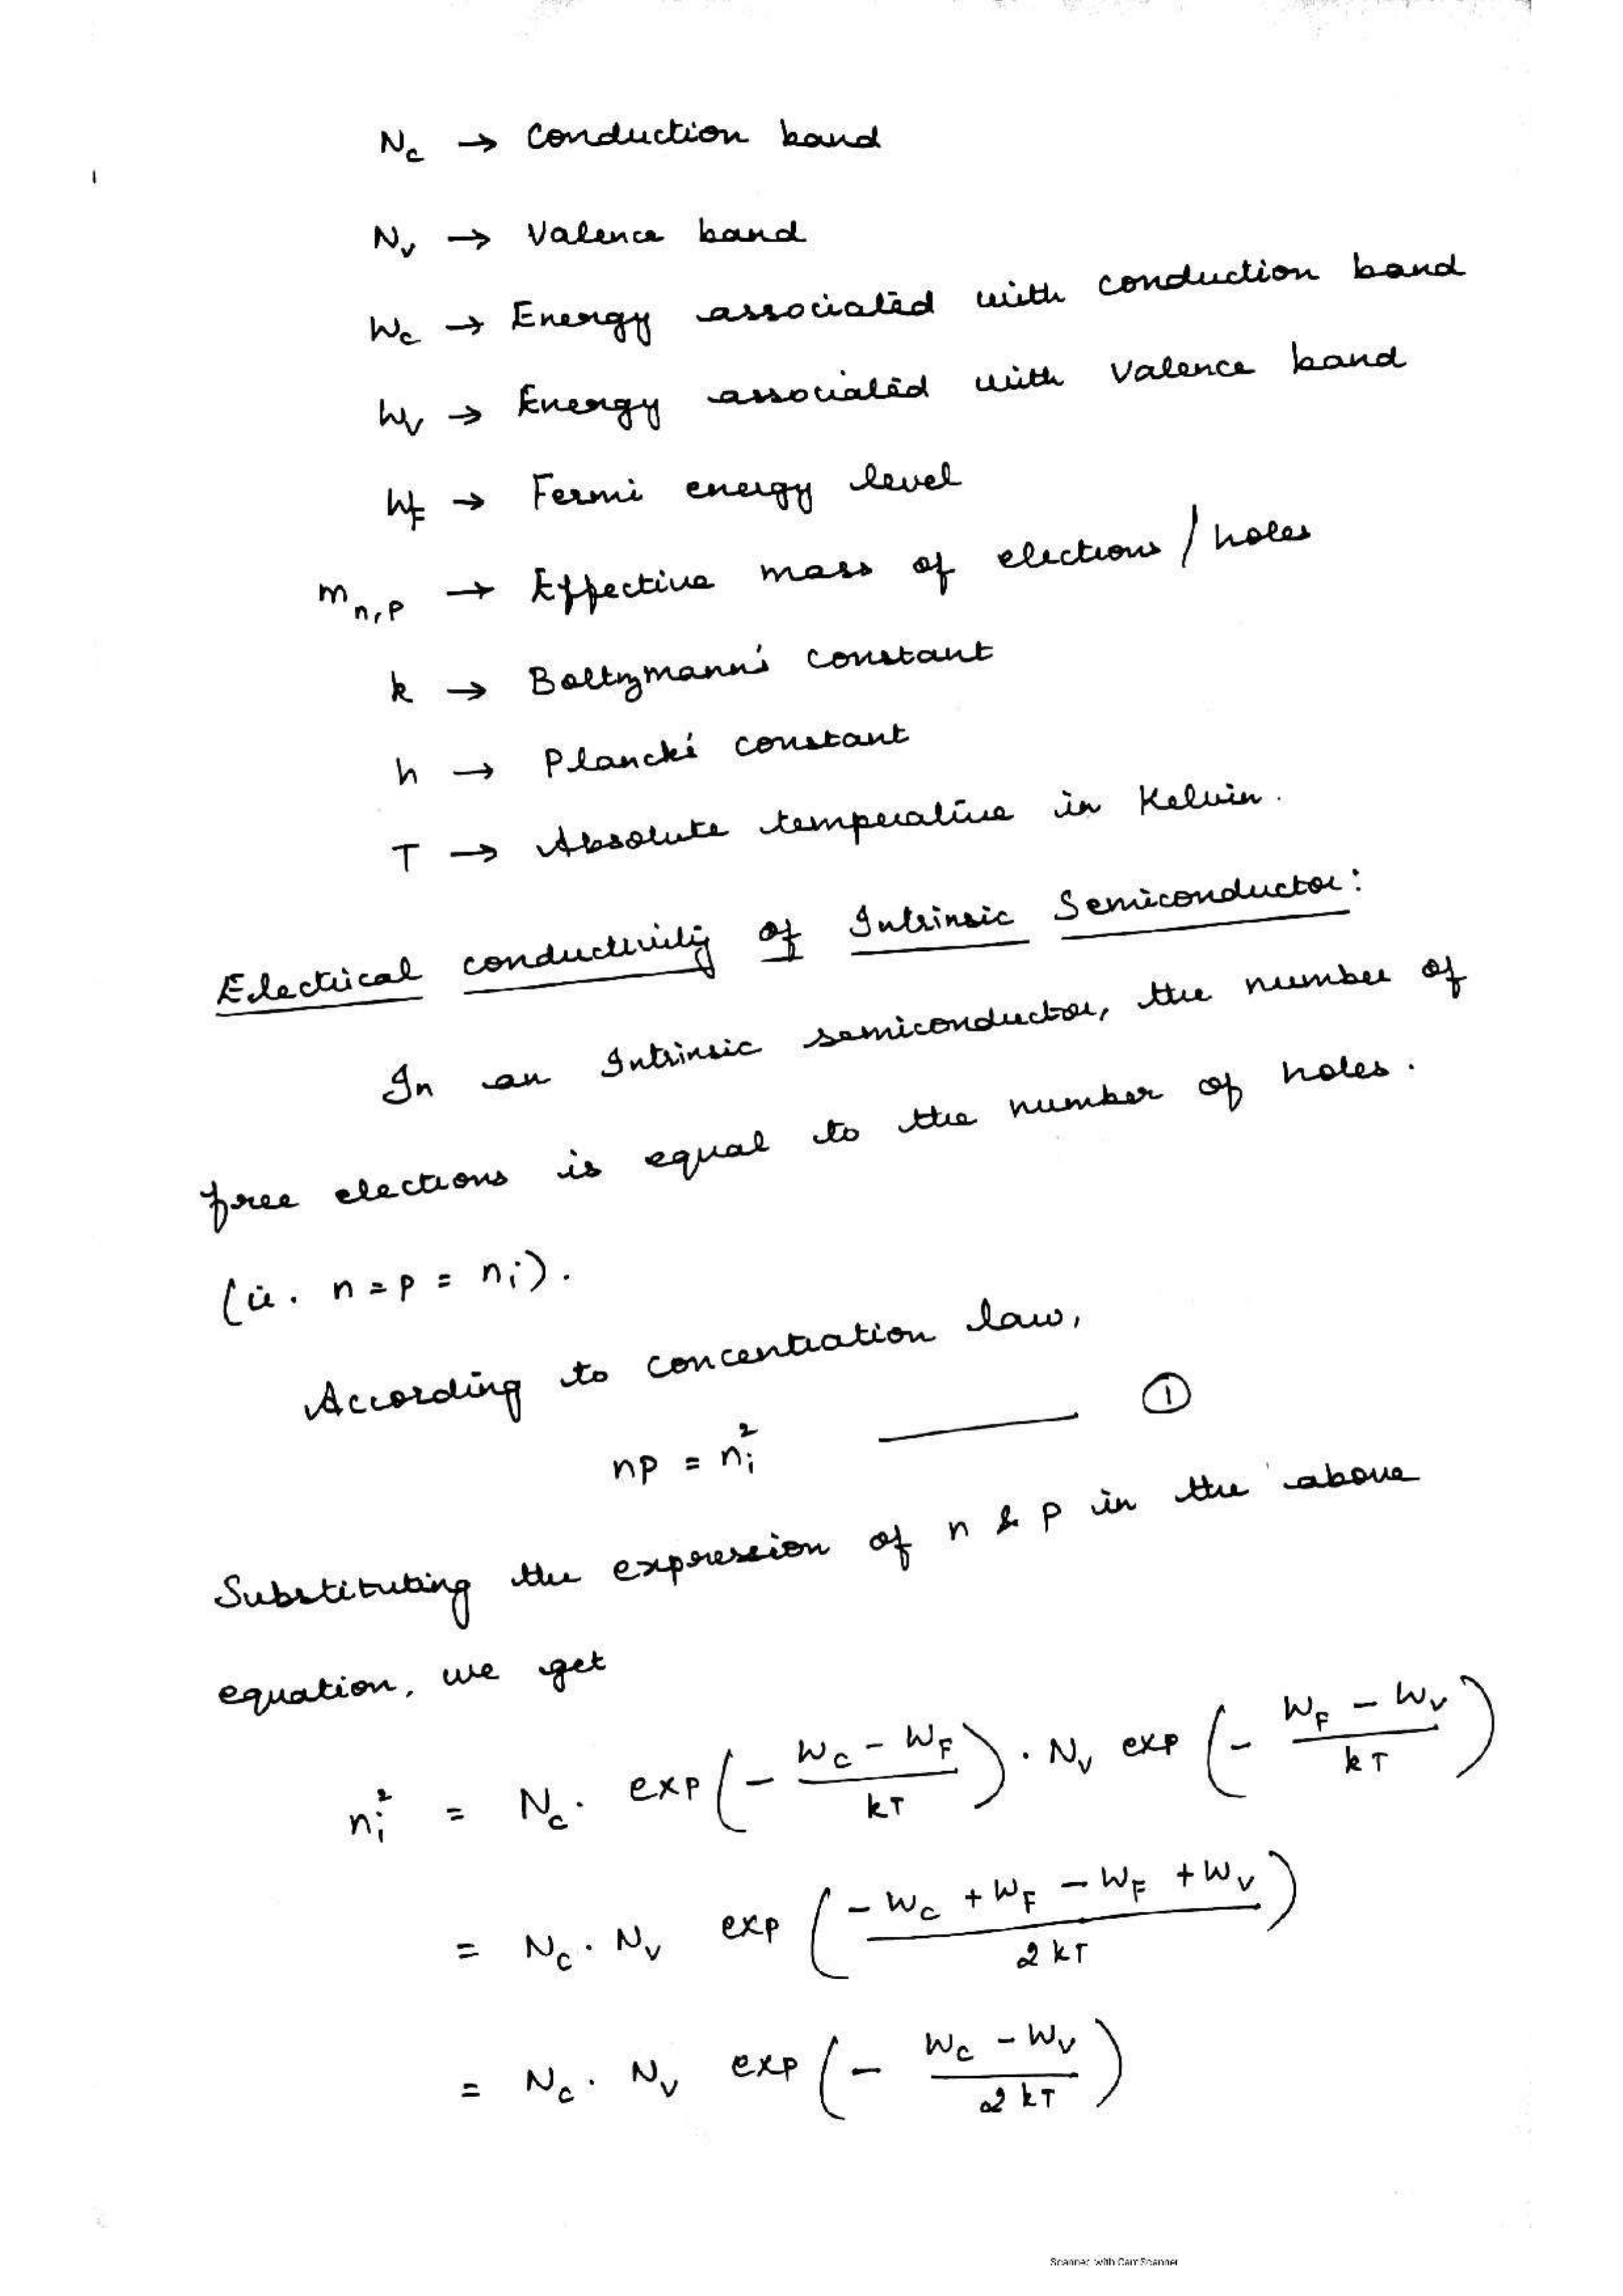 N_c → Conduction band
N_v → Valence band
W_c → Energy associated with conduction band
W_v → Energy associated with Valence band
W_F → Fermi energy level
m_n,p → Effective mass of electrons / holes
k → Boltzmann's constant
h → Planck's constant
T → Absolute temperature in Kelvin.
Electrical conductivity of Intrinsic Semiconductor:
In an Intrinsic semiconductor, the number of
free electrons is equal to the number of holes.
(ie. n = p = n_i).
According to concentration law,
np = n_i^2 ——— ①
Substituting the expression of n & p in the above
equation, we get
n_i^2 = N_c . exp ( - (W_c - W_F) / kT ) . N_v exp ( - (W_F - W_v) / kT )
= N_c . N_v exp ( (-W_c + W_F - W_F + W_v) / 2kT )
= N_c . N_v exp ( - (W_c - W_v) / 2kT )
Scanned with CamScanner